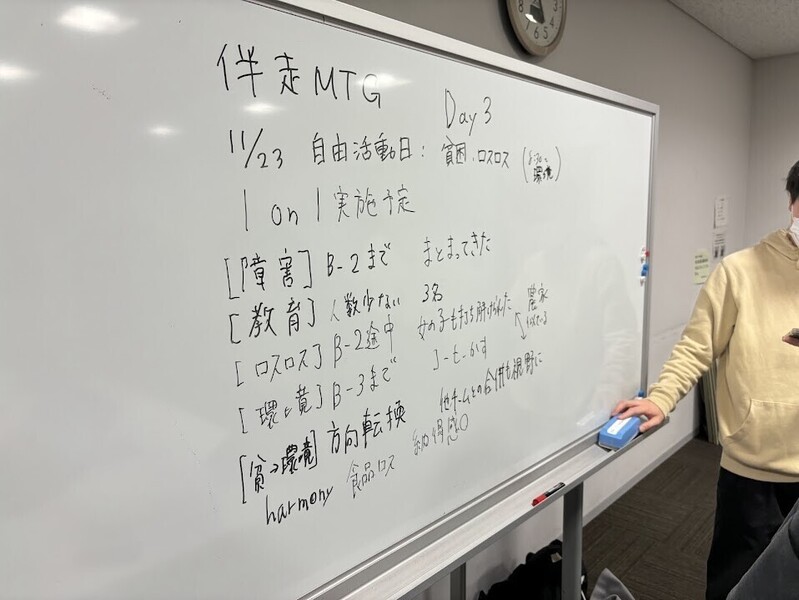 伴走MTG Day3
11/23 自由活動日: 貧困・ロスロス
環境
1 on 1 実施予定
[障害] B-2まで まとまってきた
[教育] 人数少ない 3名
[ロスロス] B-2途中 女の子も打ち解けられた
農家
[環境] B-3まで コーヒーかす
[貧→環境] 方向転換 他チームとの合併も視野に
harmony 食品ロス 納得感○